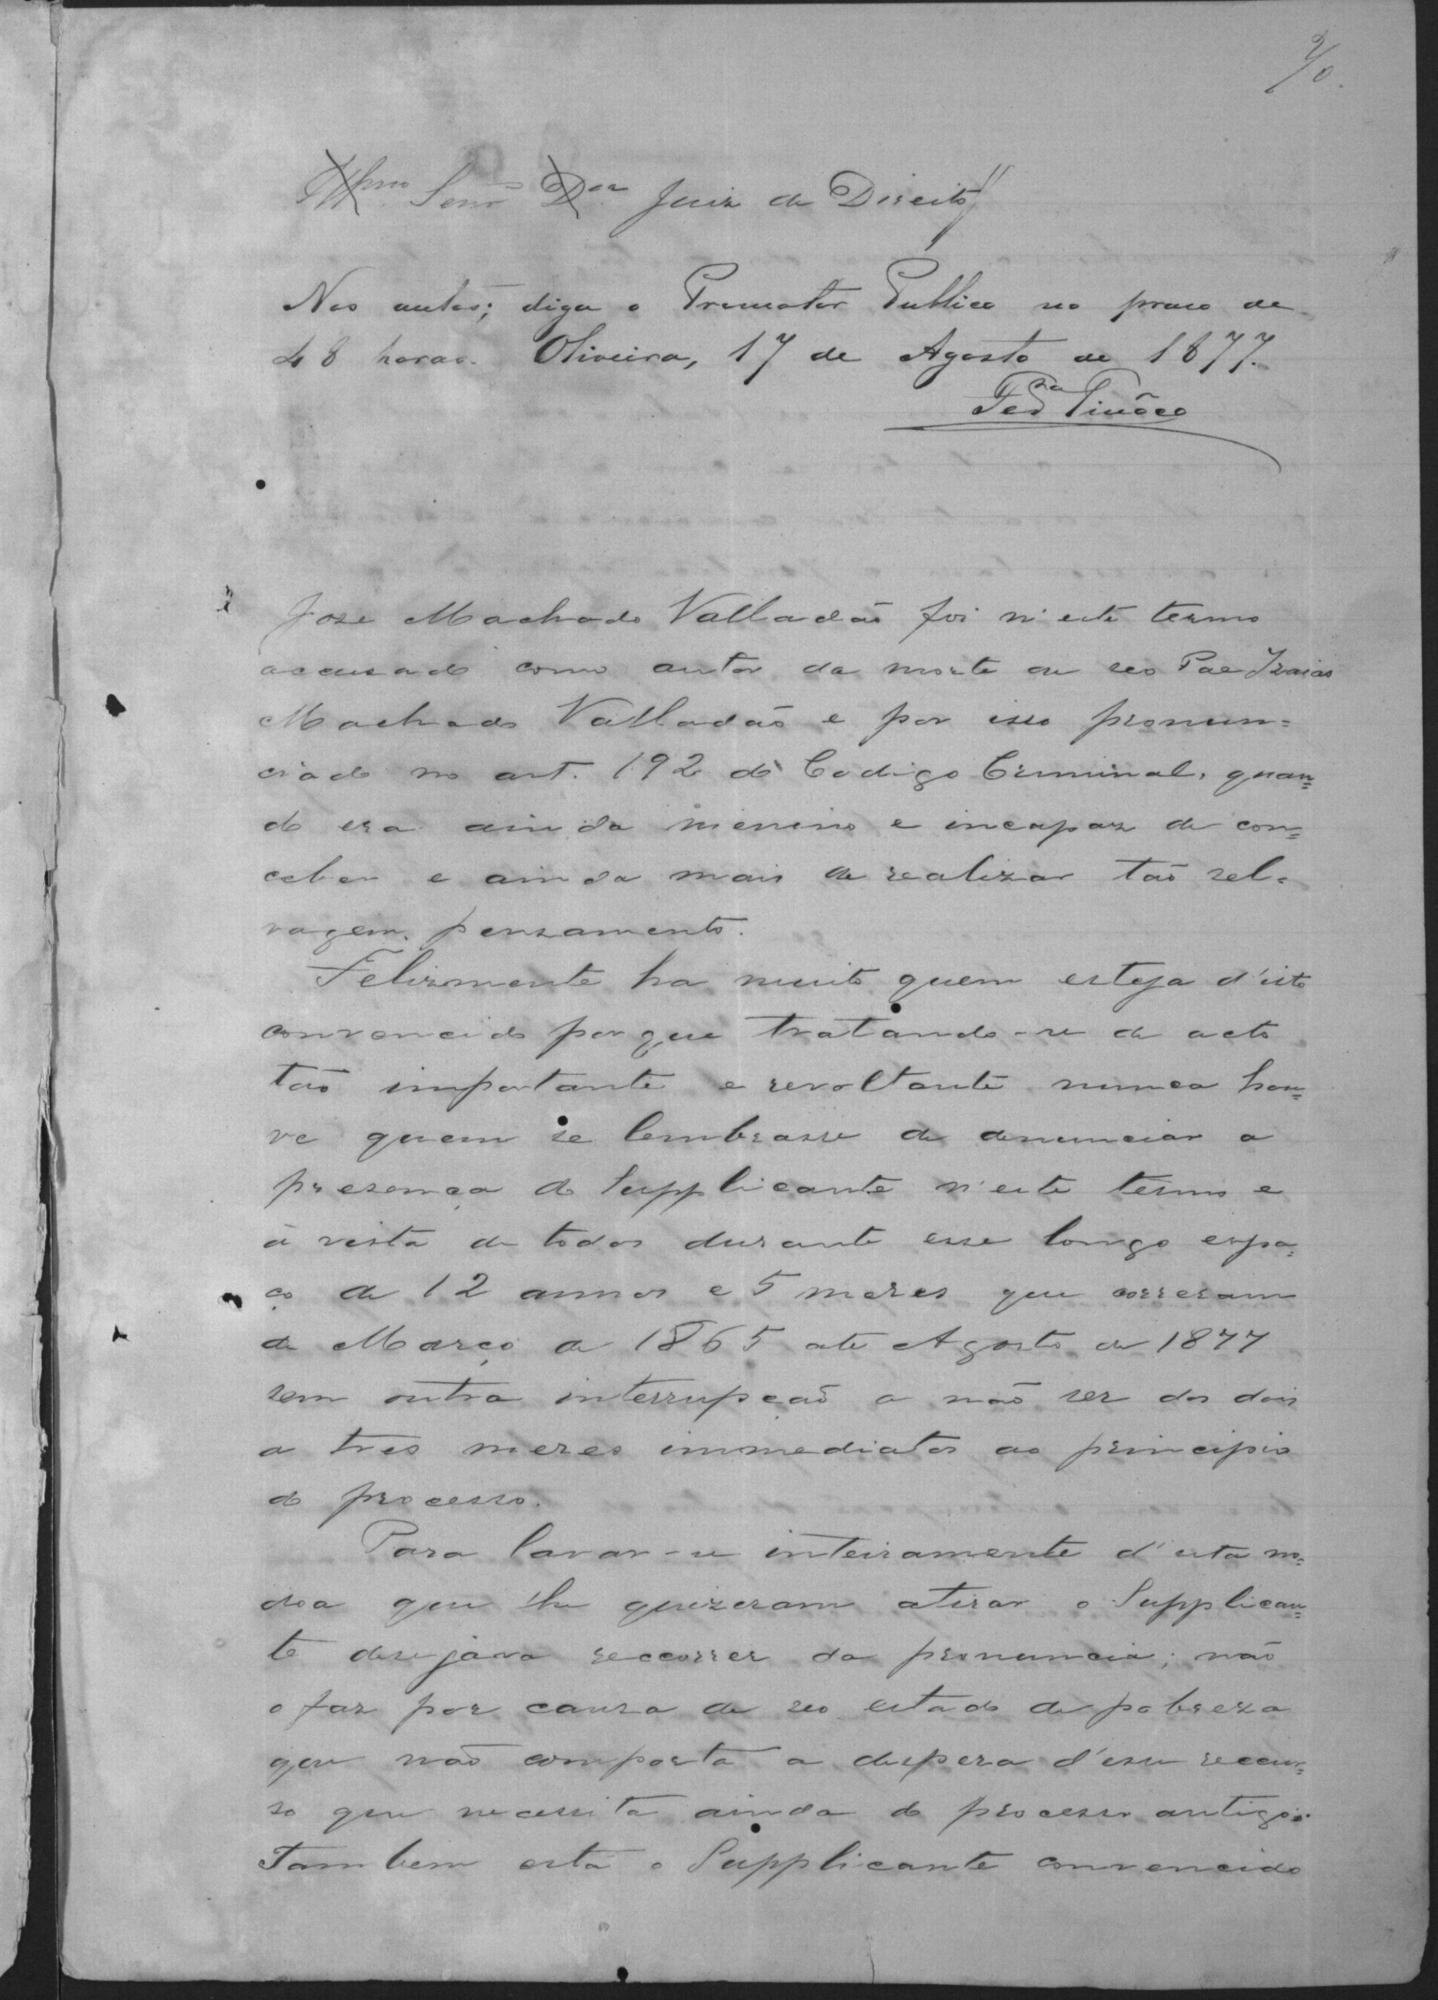 Illmo Senr Dor Juiz de Direito
Nos autos; diga o Promotor Publico no praso de
48 horas. Oliveira, 17 de Agosto de 1877.
Fera Tinôco
José Machado Valladão foi n'este termo
accusado como autor da morte de seo Pae Izaias
Machado Valladão e por isso pronun=
ciado no art. 192 do Codigo Criminal, quan=
do era ainda menino e incapaz de con=
ceber e ainda mais de realizar tão sel=
vagem pensamento.
Felizmente ha muito quem esteja d'isto
convencido porque tratando-se de acto
tão importante e revoltante nunca hou=
ve quem se lembrasse de denunciar a
presença do Supplicante n'este termo e
á vista de todos durante esse longo espa=
ço de 12 annos e 5 mezes que correram
de Março de 1865 até Agosto de 1877
sem outra interrupção a não ser dos dois
a tres mezes immediatos ao principio
do processo.
Para lavar-se inteiramente d'esta no=
doa que lhe quizeram atirar o Supplican=
te desejava reccorrer da pronuncia; não
o faz por causa de seo estado de pobreza
que não comporta a despeza d'esse recur=
so que necessita ainda do processo antigo.
Tambem está o Supplicante convencido